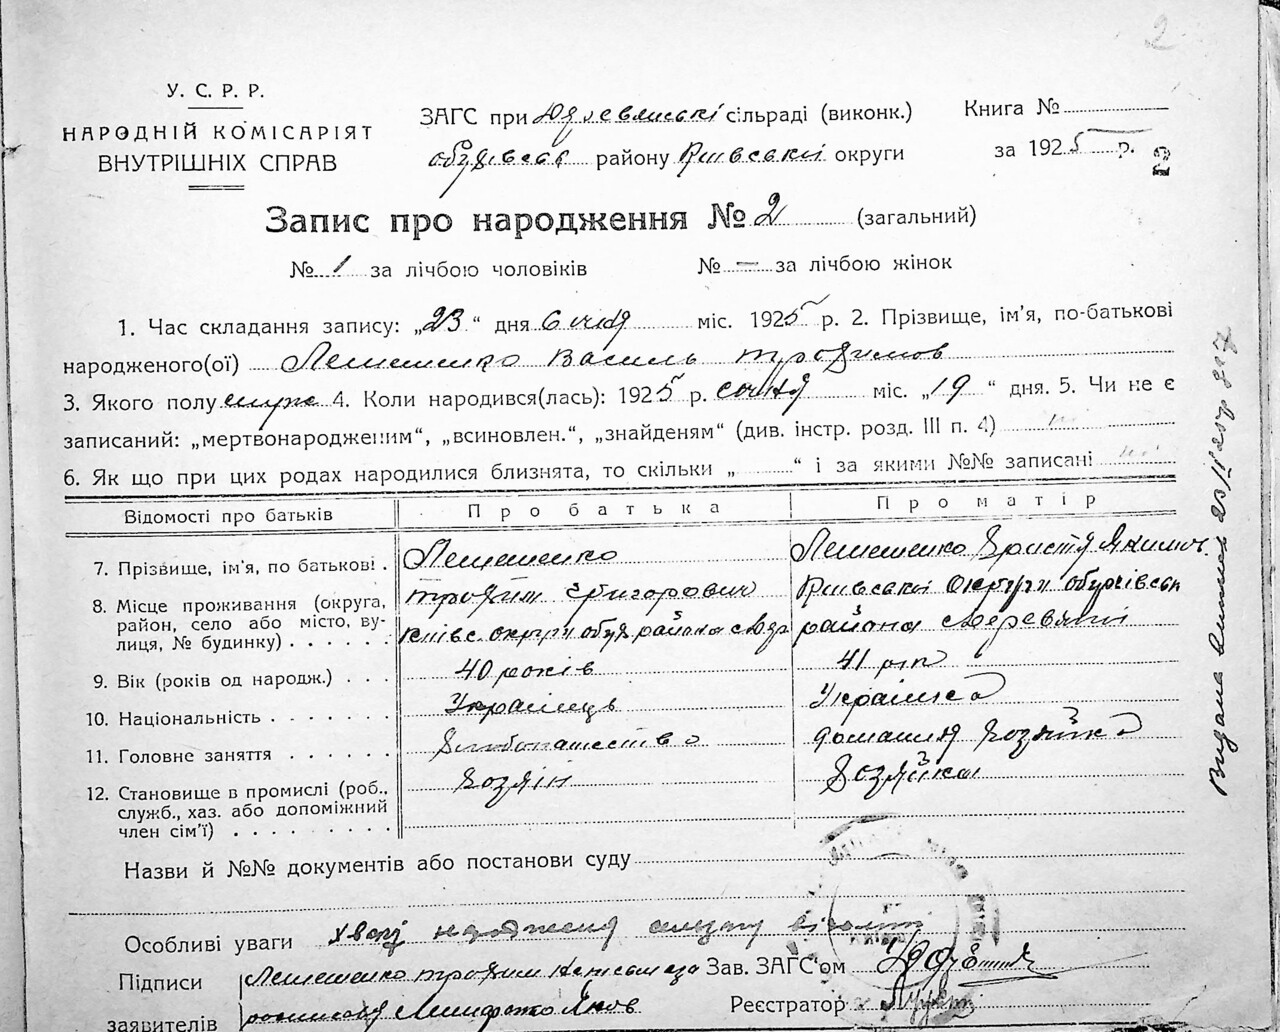 2
У. С. Р. Р.
НАРОДНІЙ КОМІСАРІЯТ
ВНУТРІШНІХ СПРАВ
ЗАГС при сільраді (виконк.)
району Київськой округи
Книга №
за 1925 р.
Запис про народження № 2 (загальний)
№ 1 за лічбою чоловіків № — за лічбою жінок
1. Час складання запису: „23“ дня січня міс. 1925 р. 2. Прізвище, ім'я, по-батькові
народженого(ої) Лемешенко Василь трофимов
3. Якого полу муж 4. Коли народився(лась): 1925 р. січня міс. „19“ дня. 5. Чи не є
записаний: „мертвонародженим“, „всиновлен.“, „знайденям“ (див. інстр. розд. III п. 4) ні
6. Як що при цих родах народилися близнята, то скільки „ “ і за якими №№ записані ні
Відомості про батьків Про батька Про матір
7. Прізвище, ім'я, по батькові . Лемешенко Лемешенко Христя Якимов.
трофим Григорович
8. Місце проживання (округа, район, село або місто, вулиця, № будинку) . . . . . . Київс. округи обух района Київськой Округи обухівськ
района Деревяні
9. Вік (років од народж.) . . . 40 років 41 рік
10. Національність . . . . . . . Українець Українка
11. Головне заняття . . . . . . Хлібопашество домашня хозяйка
12. Становище в промислі (роб., служб., хаз. або допоміжний член сім'ї) . . . . . . . . . хозяїн хозяйка
Назви й №№ документів або постанови суду
Особливі уваги
Підписи
заявителів
Лемешенко трофим
Яков
Зав. ЗАГС'ом
Реєстратор